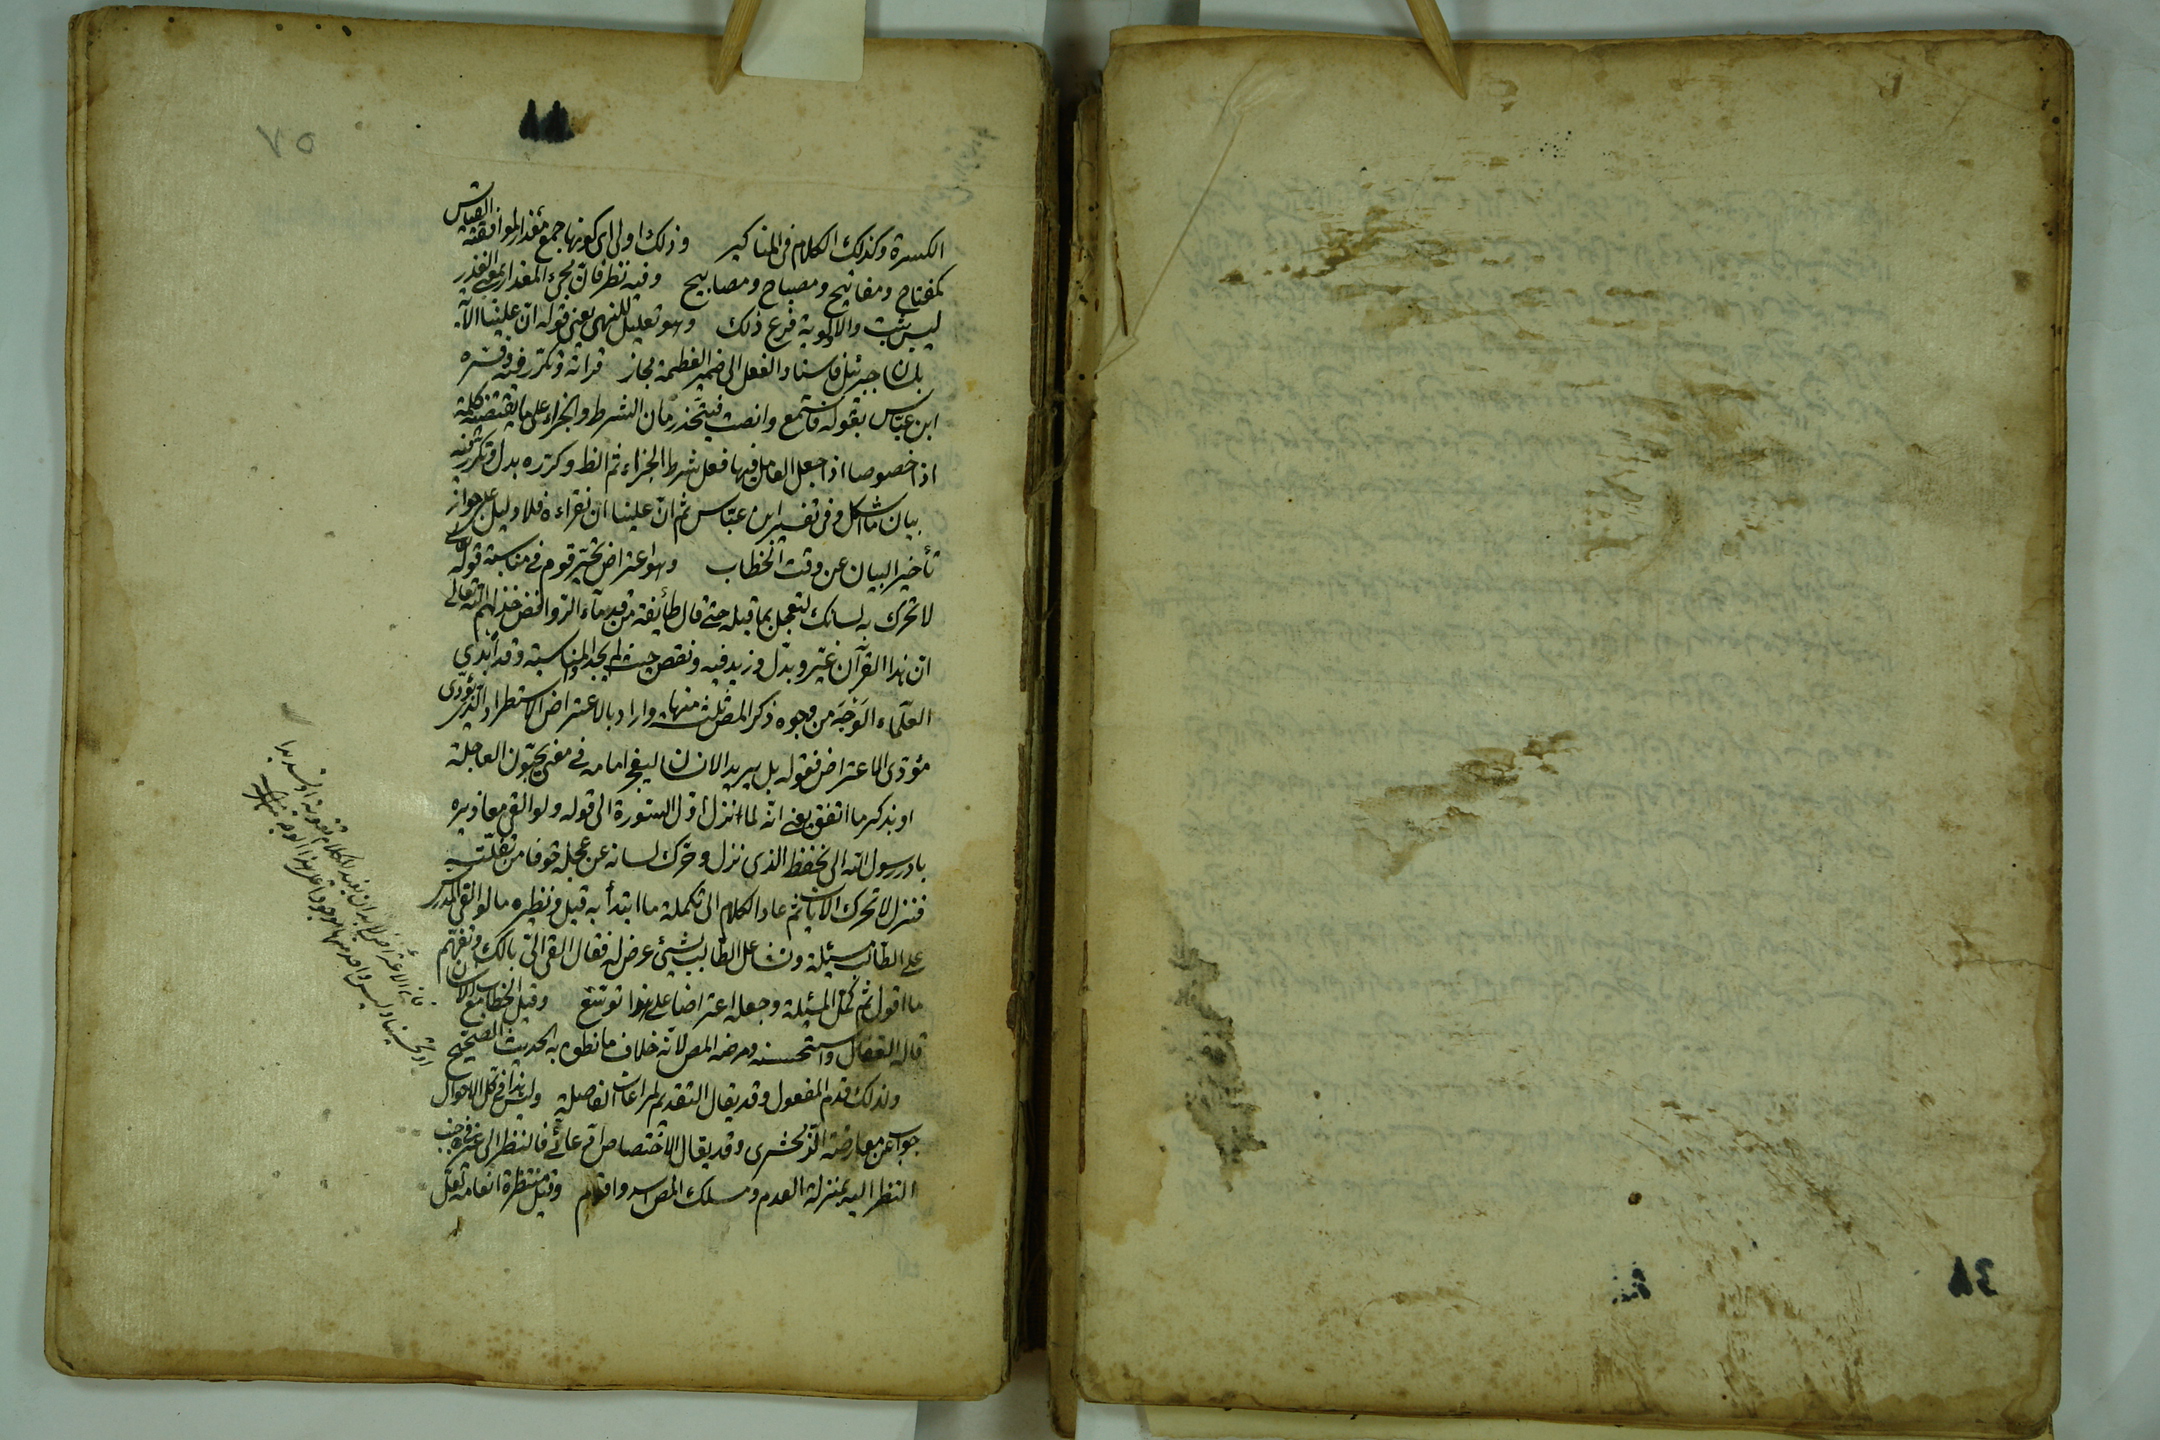 ٧٥
الكسرة وكذلك الكلام في المناكير وذلك اولى اى كونها جمع مغدار لموافقته القياس
كمفتاح ومفاتيح ومصباح ومصابيح وفيه نظر فان مجئ المغدار بمعنى الغدر
ليس بثبت والاولوية فرع ذلك وهو تعليل للنهى يعنى قوله ان علينا الآية
بلسان جبرئيل فاسناد الفعل الى ضمير العظمة مجاز قرائه وتكرر فيه وفسره
ابن عباس بقوله فاستمع وانصت فيتحد زمان الشرط والجزاء على ما يقتضيه كلمة
اذا خصوصا اذا جعل العامل فيها فعل شرط الجزاء ثم الظ وكرره بدل وتكرر فيه
بيان ما اشكل وفى تفسير ابن عباس ثم ان علينا ان نقراءه فلا دليل على جواز
تأخير البيان عن وقت الخطاب وهو اعتراض تحير قوم فى مناسبة قوله تعالى
لا تحرك به لسانك لتعجل بما قبله حتى قال طائفة من قدماء الروافض خذلهم الله تعالى
ان هذا القرآن غير وبدل وزيد فيه ونقص حيث لم يجدوا المناسبة وقد أبدى
العلماء الوجه من وجوه ذكر المص ثلث منها واراد بالاعتراض الاستطراد الذى يؤدى
مؤدى الاعتراض فقوله بل يريد الانسان ليفجر امامه فى معنى يحبون العاجلة
او بذكر ما اتفق يعنى انه لما انزل اول السورة الى قوله ولو القى معاذيره
بادر رسول الله الى تحفظ الذى نزل وحرك لسانه عن عجلة خوفا من تفلته
فنزل لا تحرك الآيات ثم عاد الكلام الى تكملة ما ابتدأ به قيل ونظيره ما لو القى المدرس
على الطالب مسئلة وتشاغل الطالب بشيئ عرض له فقال القى الى بالك وتفهم
ما اقول ثم كمل المسئلة وجعله اعتراضا على هذا توسع وقيل الخطاب مع الانسان
قاله القفال واستحسنه ومرضه المص لانه خلاف ما نطق به الحديث الصحيح
ولذلك قدم المفعول وقد يقال التقديم لمراعات الفاصلة وليس هذا فى كل الاحوال
جواب عن معارضة الزمخشرى وقد يقال الاختصاص ادعائى فالنظر الى غيره فى جنب
النظر اليه بمنزلة العدم ومسلك المص اسد واقوم وقيل منتظرة انعامه تعقل